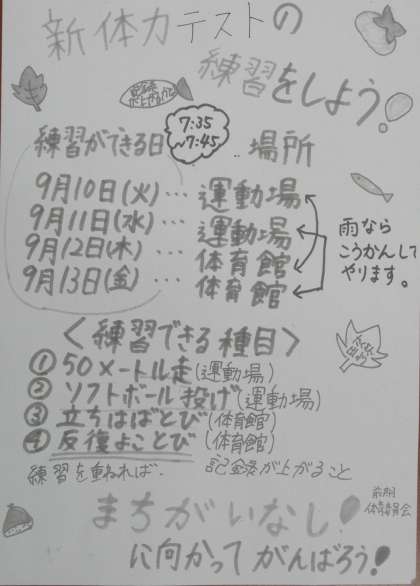 新体力テストの
練習をしよう!
7:35
~7:45
練習ができる日
場所
9月10日(火)…運動場
9月11日(水)…運動場
9月12日(木)…体育館
9月13日(金)…体育館
雨なら
こうかんして
やります。
<練習できる種目>
①50メートル走(運動場)
②ソフトボール投げ(運動場)
③立ちはばとび(体育館)
④反復よことび(体育館)
練習を重ねれば、記録が上がること
まちがいなし!
前期
体育委員会
に向かってがんばろう!